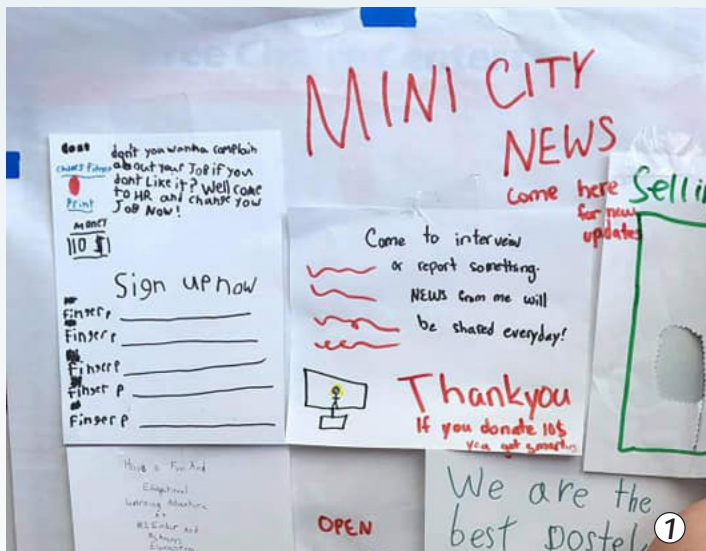 MINI CITY
NEWS
come here
for new
updates
Sellin
dont you wanna complain
about your Job if you
dont Like it? Well come
to HR and change you
Job Now!
Print
money
10 $
Sign up now
Finger p
Finger p
Finger p
Finger p
Finger p
Come to interview
or report something.
NEWS from me will
be shared everyday!
Thankyou
If you donate 10$
you get
Have a Fun And
Educational
Learning Adventure
OPEN
We are the
best Postel
1